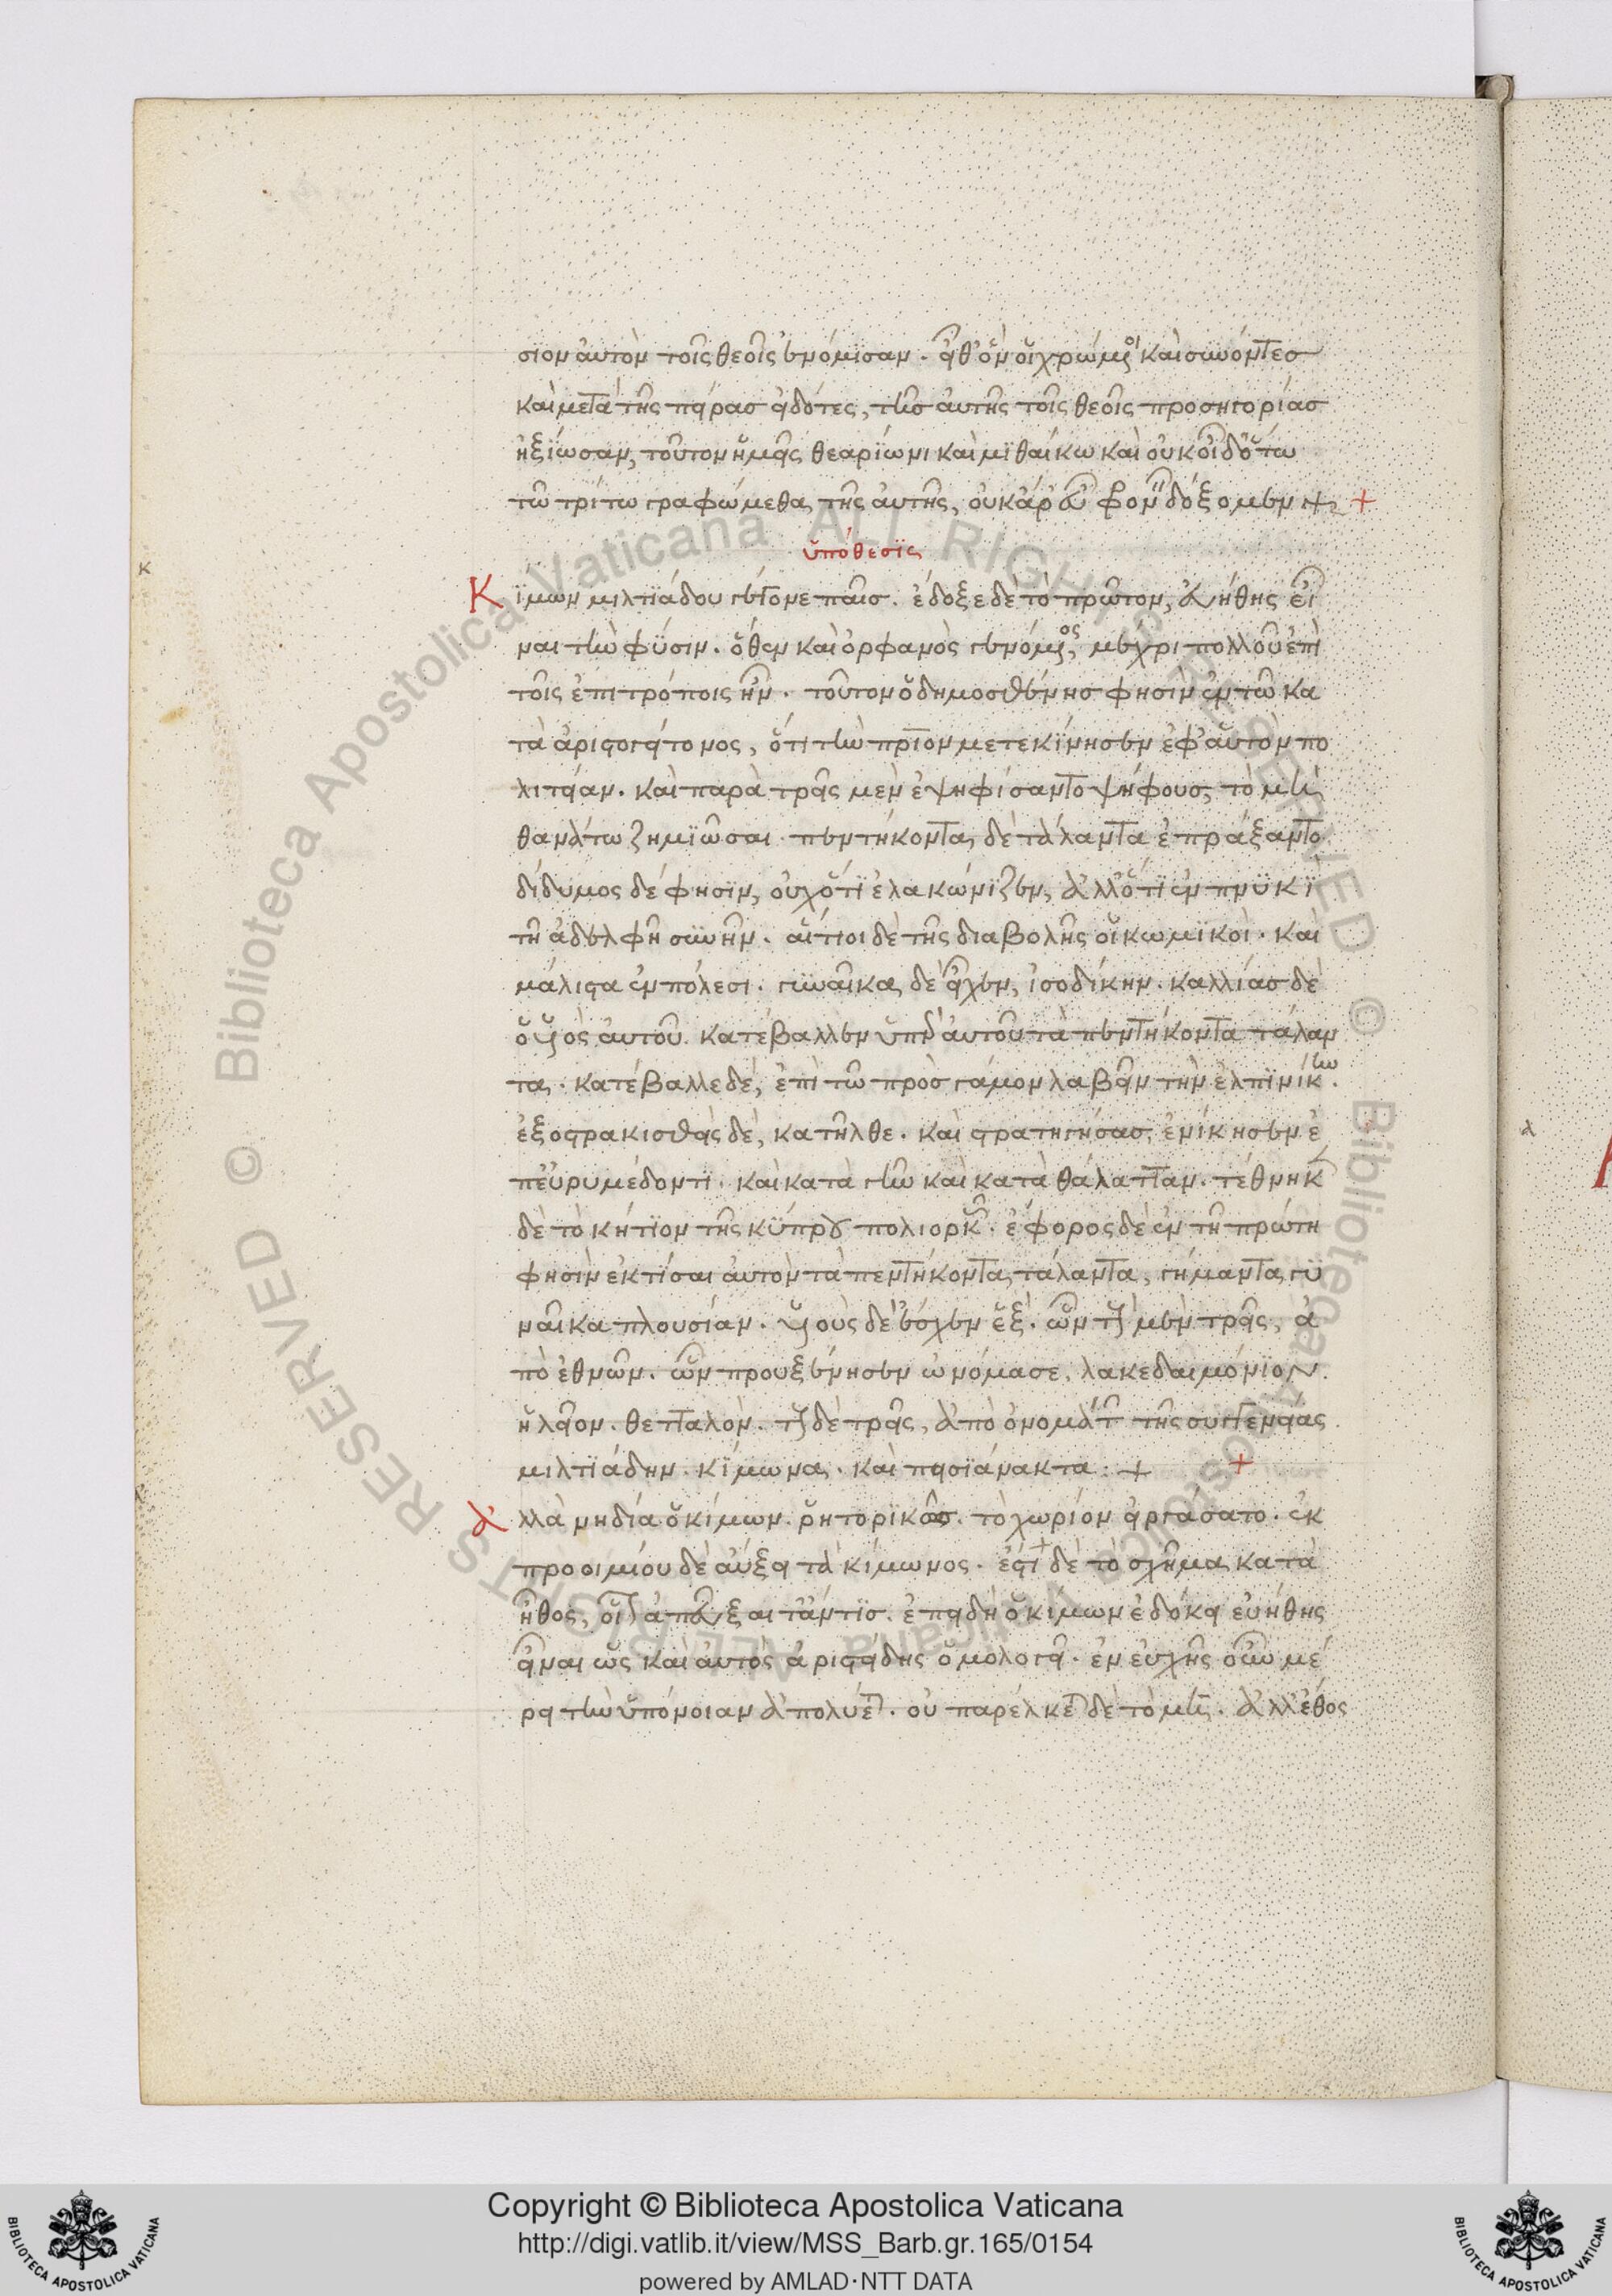 σιον αὐτὸν τοῖς θεοῖς ἐνόμισαν. εἶθ' ὃν οἱ χρώμενοι καὶ συνόντες
καὶ μετὰ τῆς πείρας εἰδότες, τῆς αὐτῆς τοῖς θεοῖς προσηγορίας
ἠξίωσαν, τοῦτον ἡμεῖς θεαρίωνι καὶ μιθαίκω καὶ οὐκ οἶδ' ὅτω
τῶ τρίτω γραφώμεθα τῆς αὐτῆς, οὐκ ἄρ' εὖ φρονεῖν δόξομεν +
ὑπόθεσις
Κίμων μιλτιάδου γέγονε παῖς. ἔδοξε δὲ τὸ πρῶτον, εὐήθης εἶ
ναι τὴν φύσιν. ὅθεν καὶ ὀρφανὸς γενόμενος, μέχρι πολλοῦ ἐπὶ
τοῖς ἐπιτρόποις ἦν. τοῦτον ὁ δημοσθένης φησὶν ἐν τῶ κα
τὰ ἀριστογείτονος, ὅτι τὴν πάτριον μετεκίνησεν ἐφ' αὑτὸν πο
λιτείαν. καὶ παρὰ τρεῖς μὲν ἐψηφίσαντο ψήφους τὸ μὴ
θανάτω ζημιῶσαι. πεντήκοντα δὲ τάλαντα ἐπράξαντο.
δίδυμος δέ φησιν, οὐχ ὅτι ἐλακώνιζεν, ἀλλ' ὅτι ἐλπινίκῃ
τῆ ἀδελφῆ συνῆν. αἴτιοι δὲ τῆς διαβολῆς οἱ κωμικοὶ. καὶ
μάλιστα ἐν πόλεσι. γυναῖκα δὲ εἶχεν, ἰσοδίκην. καλλίας δὲ
ὁ υἱὸς αὐτοῦ κατέβαλλεν ὑπὲρ αὐτοῦ τὰ πεντήκοντα τάλαν
τα. κατέβαλλε δὲ, ἐπὶ τῶ πρὸς γάμον λαβεῖν τὴν ἐλπινίκην.
ἐξοστρακισθεὶς δὲ, κατῆλθε. καὶ στρατηγήσας, ἐνίκησεν ἐ
π' εὐρυμέδοντι. καὶ κατὰ γῆν καὶ κατὰ θάλατταν. τέθνηκε
δὲ τὸ κήτιον τῆς κύπρου πολιορκῶν. ἔφορος δὲ ἐν τῆ πρώτη
φησὶν ἐκτίσαι αὐτὸν τὰ πεντήκοντα τάλαντα, γήμαντα γυ
ναῖκα πλουσίαν. υἱοὺς δὲ ἔσχεν ἓξ. ὧν τοὺς μὲν τρεῖς, ἀ
πὸ ἐθνῶν. ὧν προυξένησεν ὠνόμασε, λακεδαιμόνιον.
ἠλεῖον. θετταλὸν. τοὺς δὲ τρεῖς, ἀπὸ ὀνομάτων τῆς συγγενείας.
μιλτιάδην. κίμωνα. καὶ πεισιάνακτα: +
ἀλλὰ νὴ δία ὁ κίμων. ῥητορικῶς. τὸ χωρίον εἰργάσατο. ἐκ
προοιμίου δὲ αὔξει τὰ κίμωνος. ἔστι δὲ τὸ σχῆμα κατὰ
ἦθος, ἐπειδὴ ὁ κίμων ἐδόκει εὐήθης
εἶναι ὡς καὶ αὐτὸς ἀριστείδης ὁμολογεῖ. ἐν εὐχῆς οὖν μέ
ρει τὴν ὑπόνοιαν ἀπολύεται. οὐ παρέλκεται δὲ τὸ μὴ. ἀλλ' ἔθος
κ
Copyright © Biblioteca Apostolica Vaticana
http://digi.vatlib.it/view/MSS_Barb.gr.165/0154
powered by AMLAD·NTT DATA
BIBLIOTECA APOSTOLICA VATICANA
BIBLIOTECA APOSTOLICA VATICANA
© Biblioteca Apostolica Vaticana ALL RIGHTS RESERVED © Biblioteca Apostolica Vaticana ALL RIGHTS RESERVED